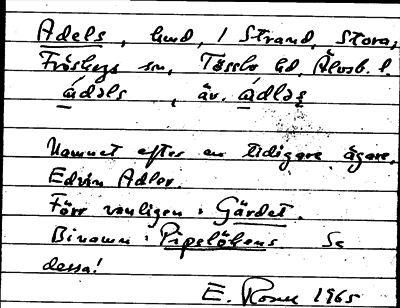 Adels, hmd, i Strand, Stora,
Fröskogs sn, Tössbo hd, Älvsb. l.
ádəls, äv. ádləs
Namnet efter en tidigare ägare,
Edvin Adler.
Förr vanligen: Gärdet.
Binamn: Pipelökens Se
dessa!
E. 1965